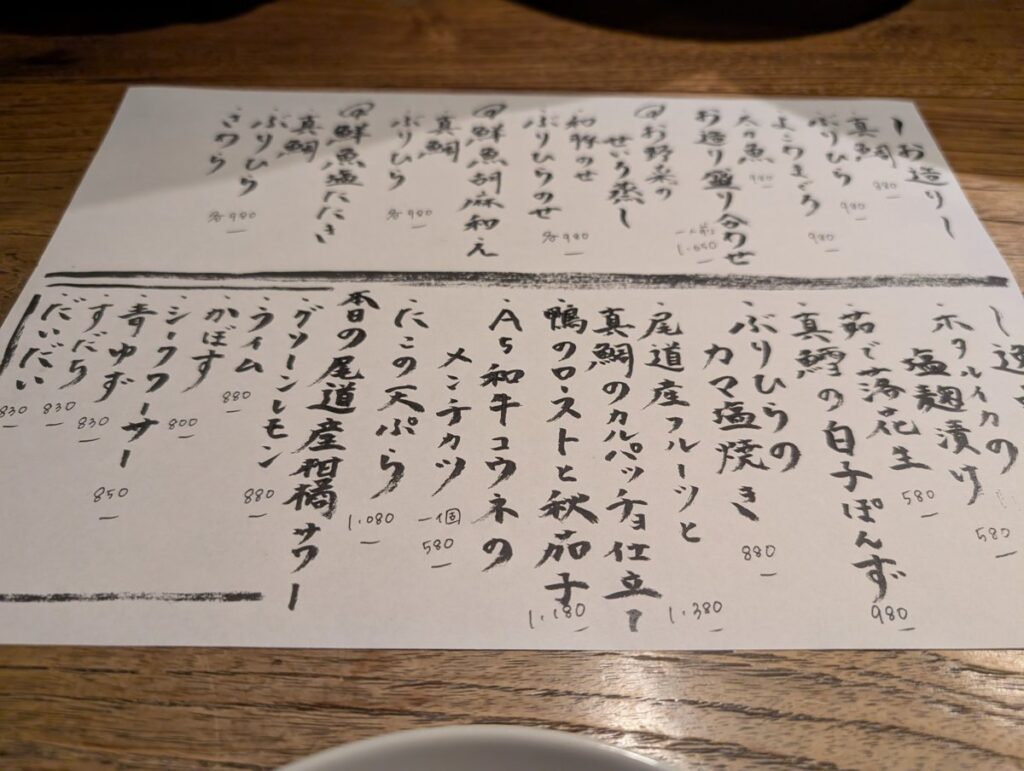 ーお造りー
・真鯛 880
・ぶりひら 980
・よこわまぐろ 980
・太刀魚 980
お造り盛り合わせ 一人前 1,650
@お野菜の
せいろ蒸し
・和豚のせ
・ぶりひらのせ 各980
@鮮魚胡麻和え
・真鯛
・ぶりひら 各980
@鮮魚塩たたき
・真鯛
・ぶりひら
・さわら 各980
・ホタルイカの
塩麹漬け 580
・茹で落花生 580
・真鱈の白子ぽんず 980
・ぶりひらの
カマ塩焼き 880
・尾道産フルーツと
真鯛のカルパッチョ仕立て 1,380
・鴨のロストと秋茄子 1,180
・A5和牛コウネの
メンチカツ 一個 580
・たこの天ぷら 1,080
本日の尾道産柑橘サワー
・グリーンレモン 880
・ライム 880
・かぼす 800
・シークワーサー 850
・青ゆず 830
・すだち 830
・だいだい 830